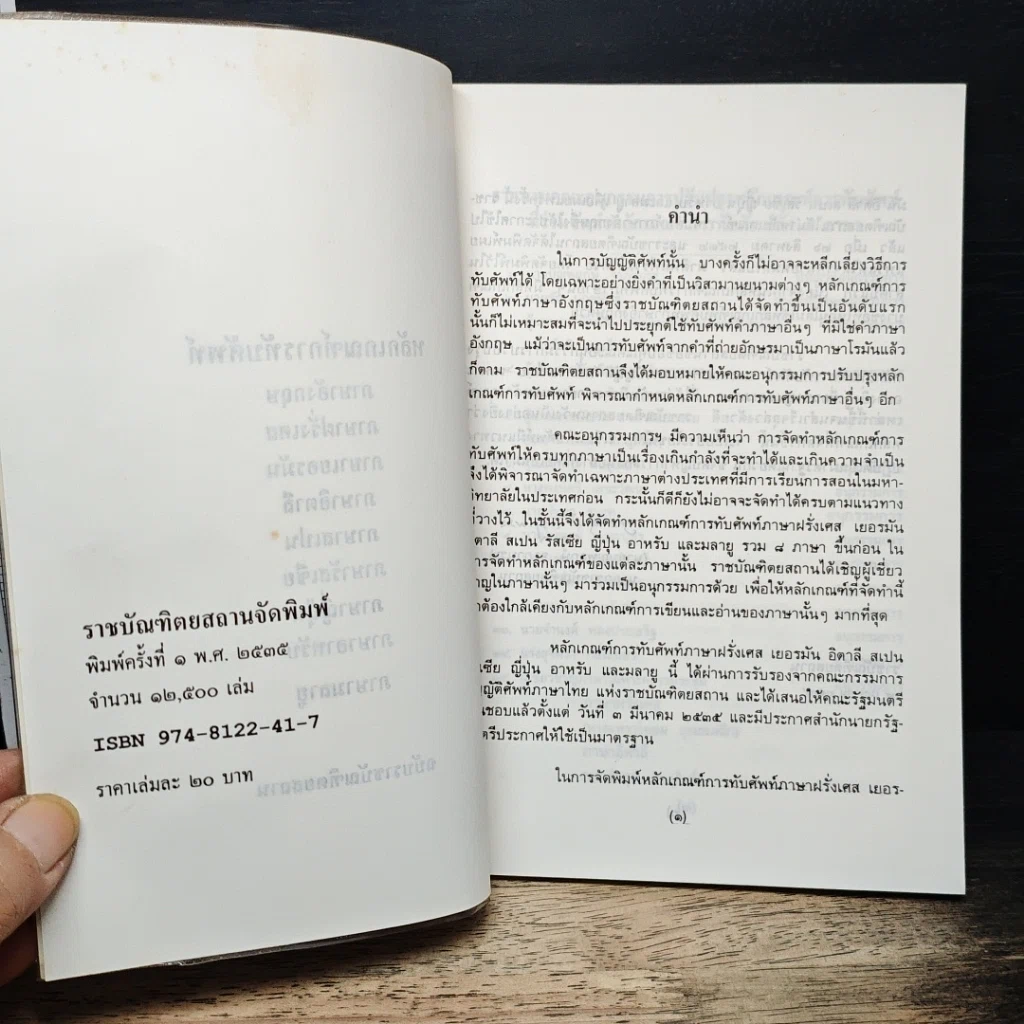 ราชบัณฑิตยสถานจัดพิมพ์
พิมพ์ครั้งที่ ๑ พ.ศ. ๒๕๓๕
จำนวน ๑๒,๕๐๐ เล่ม
ISBN 974-8122-41-7
ราคาเล่มละ ๒๐ บาท
คำนำ
ในการบัญญัติศัพท์นั้น บางครั้งก็ไม่อาจจะหลีกเลี่ยงวิธีการ
ทับศัพท์ได้ โดยเฉพาะอย่างยิ่งคำที่เป็นวิสามานยนามต่างๆ หลักเกณฑ์การ
ทับศัพท์ภาษาอังกฤษซึ่งราชบัณฑิตยสถานได้จัดทำขึ้นเป็นอันดับแรก
นั้นก็ไม่เหมาะสมที่จะนำไปประยุกต์ใช้ทับศัพท์คำภาษาอื่นๆ ที่มิใช่คำภาษา
อังกฤษ แม้ว่าจะเป็นการทับศัพท์จากคำที่ถ่ายอักษรมาเป็นภาษาโรมันแล้ว
ก็ตาม ราชบัณฑิตยสถานจึงได้มอบหมายให้คณะอนุกรรมการปรับปรุงหลัก
เกณฑ์การทับศัพท์ พิจารณากำหนดหลักเกณฑ์การทับศัพท์ภาษาอื่นๆ อีก
คณะอนุกรรมการฯ มีความเห็นว่า การจัดทำหลักเกณฑ์การ
ทับศัพท์ให้ครบทุกภาษาเป็นเรื่องเกินกำลังที่จะทำได้และเกินความจำเป็น
จึงได้พิจารณาจัดทำเฉพาะภาษาต่างประเทศที่มีการเรียนการสอนในมหา-
วิทยาลัยในประเทศก่อน กระนั้นก็ดีก็ยังไม่อาจจะจัดทำได้ครบตามแนวทาง
ที่วางไว้ ในชั้นนี้จึงได้จัดทำหลักเกณฑ์การทับศัพท์ภาษาฝรั่งเศส เยอรมัน
อิตาลี สเปน รัสเซีย ญี่ปุ่น อาหรับ และมลายู รวม ๘ ภาษา ขึ้นก่อน ใน
การจัดทำหลักเกณฑ์ของแต่ละภาษานั้น ราชบัณฑิตยสถานได้เชิญผู้เชี่ยว
ชาญในภาษานั้นๆ มาร่วมเป็นอนุกรรมการด้วย เพื่อให้หลักเกณฑ์ที่จัดทำนี้
ถูกต้องใกล้เคียงกับหลักเกณฑ์การเขียนและอ่านของภาษานั้นๆ มากที่สุด
หลักเกณฑ์การทับศัพท์ภาษาฝรั่งเศส เยอรมัน อิตาลี สเปน
รัสเซีย ญี่ปุ่น อาหรับ และมลายู นี้ ได้ผ่านการรับรองจากคณะกรรมการ
บัญญัติศัพท์ภาษาไทย แห่งราชบัณฑิตยสถาน และได้เสนอให้คณะรัฐมนตรี
เห็นชอบแล้วตั้งแต่ วันที่ ๓ มีนาคม ๒๕๓๕ และมีประกาศสำนักนายกรัฐ-
มนตรีประกาศให้ใช้เป็นมาตรฐาน
ในการจัดพิมพ์หลักเกณฑ์การทับศัพท์ภาษาฝรั่งเศส เยอร-
(๑)